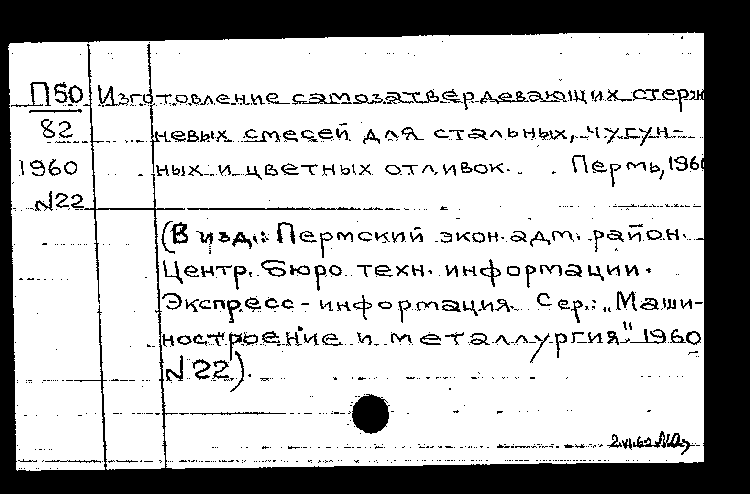 П50 Изготовление самозатвердевающих стерж
82 невых смесей для стальных, чугун-
1960 ных и цветных отливок. Пермь, 1960
№22
(В изд.: Пермский экон. адм. район.
Центр. бюро техн. информации.
Экспресс-информация. Сер.: „Маши-
ностроение и металлургия". 1960
№22).